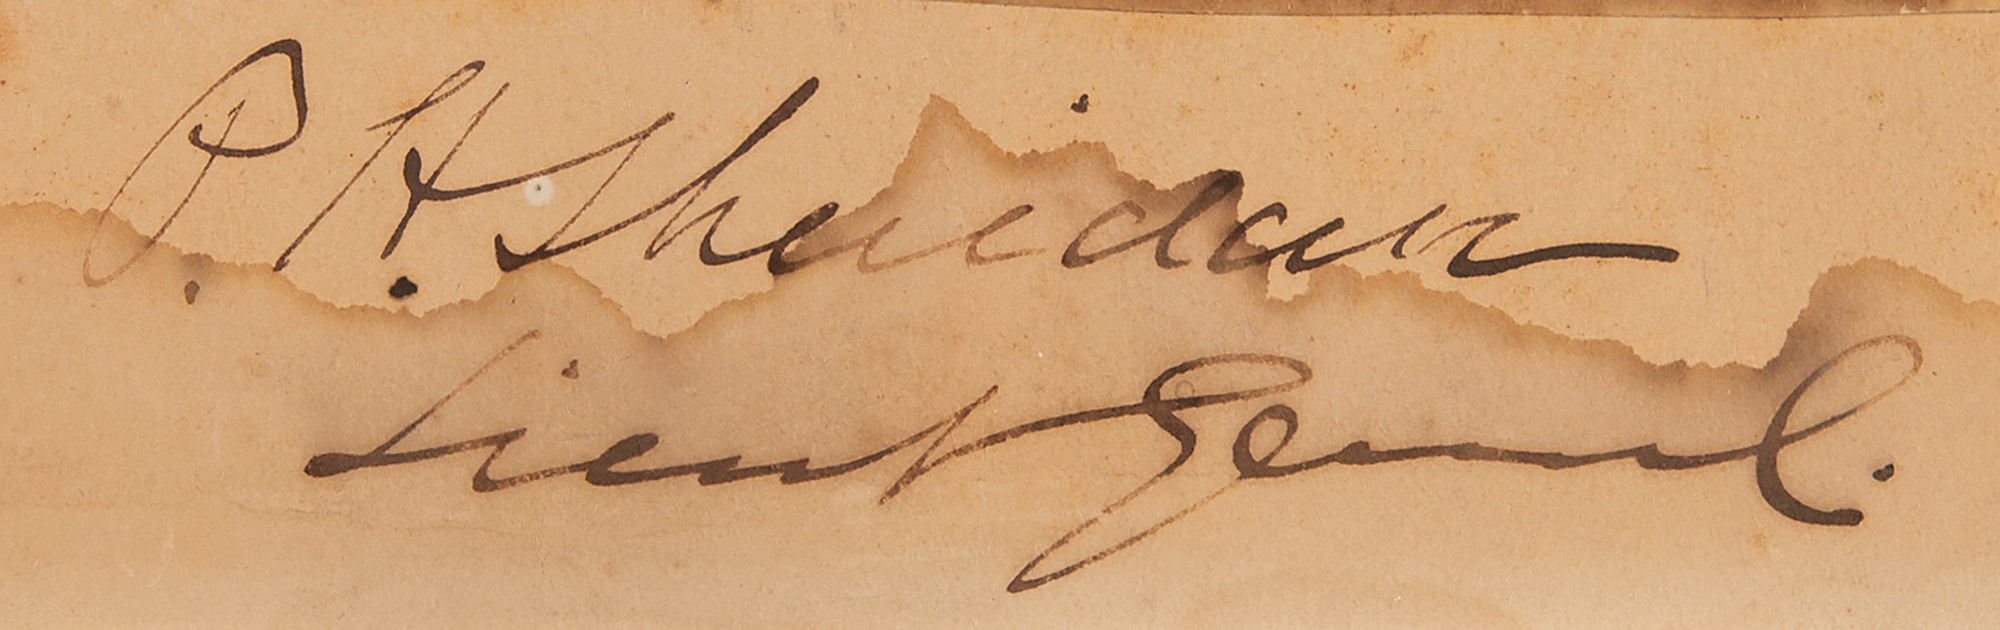 P. H. Sheridan
Lieut Genl.